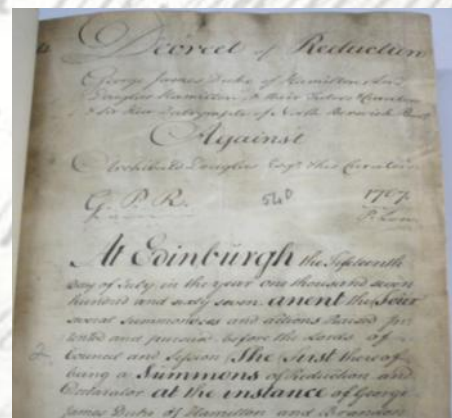 Decreet of Reduction
George James Duke of Hamilton Lord
Douglas Hamilton & their Tutors & Curators
& Sir Hew Dalrymple of North Berwick
Against
Archibald Douglas Esqr. & his Curators
G. P. R. 540 1767
At Edinburgh the fifteenth
day of July in the year one thousand seven
hundred and sixty seven anent the four
several summonses and actions Raised
and pursued before the Lords of
2 Council and Session The first thereof
being a Summons of Reduction and
Declarator at the instance of George
James Duke of Hamilton and Brandon